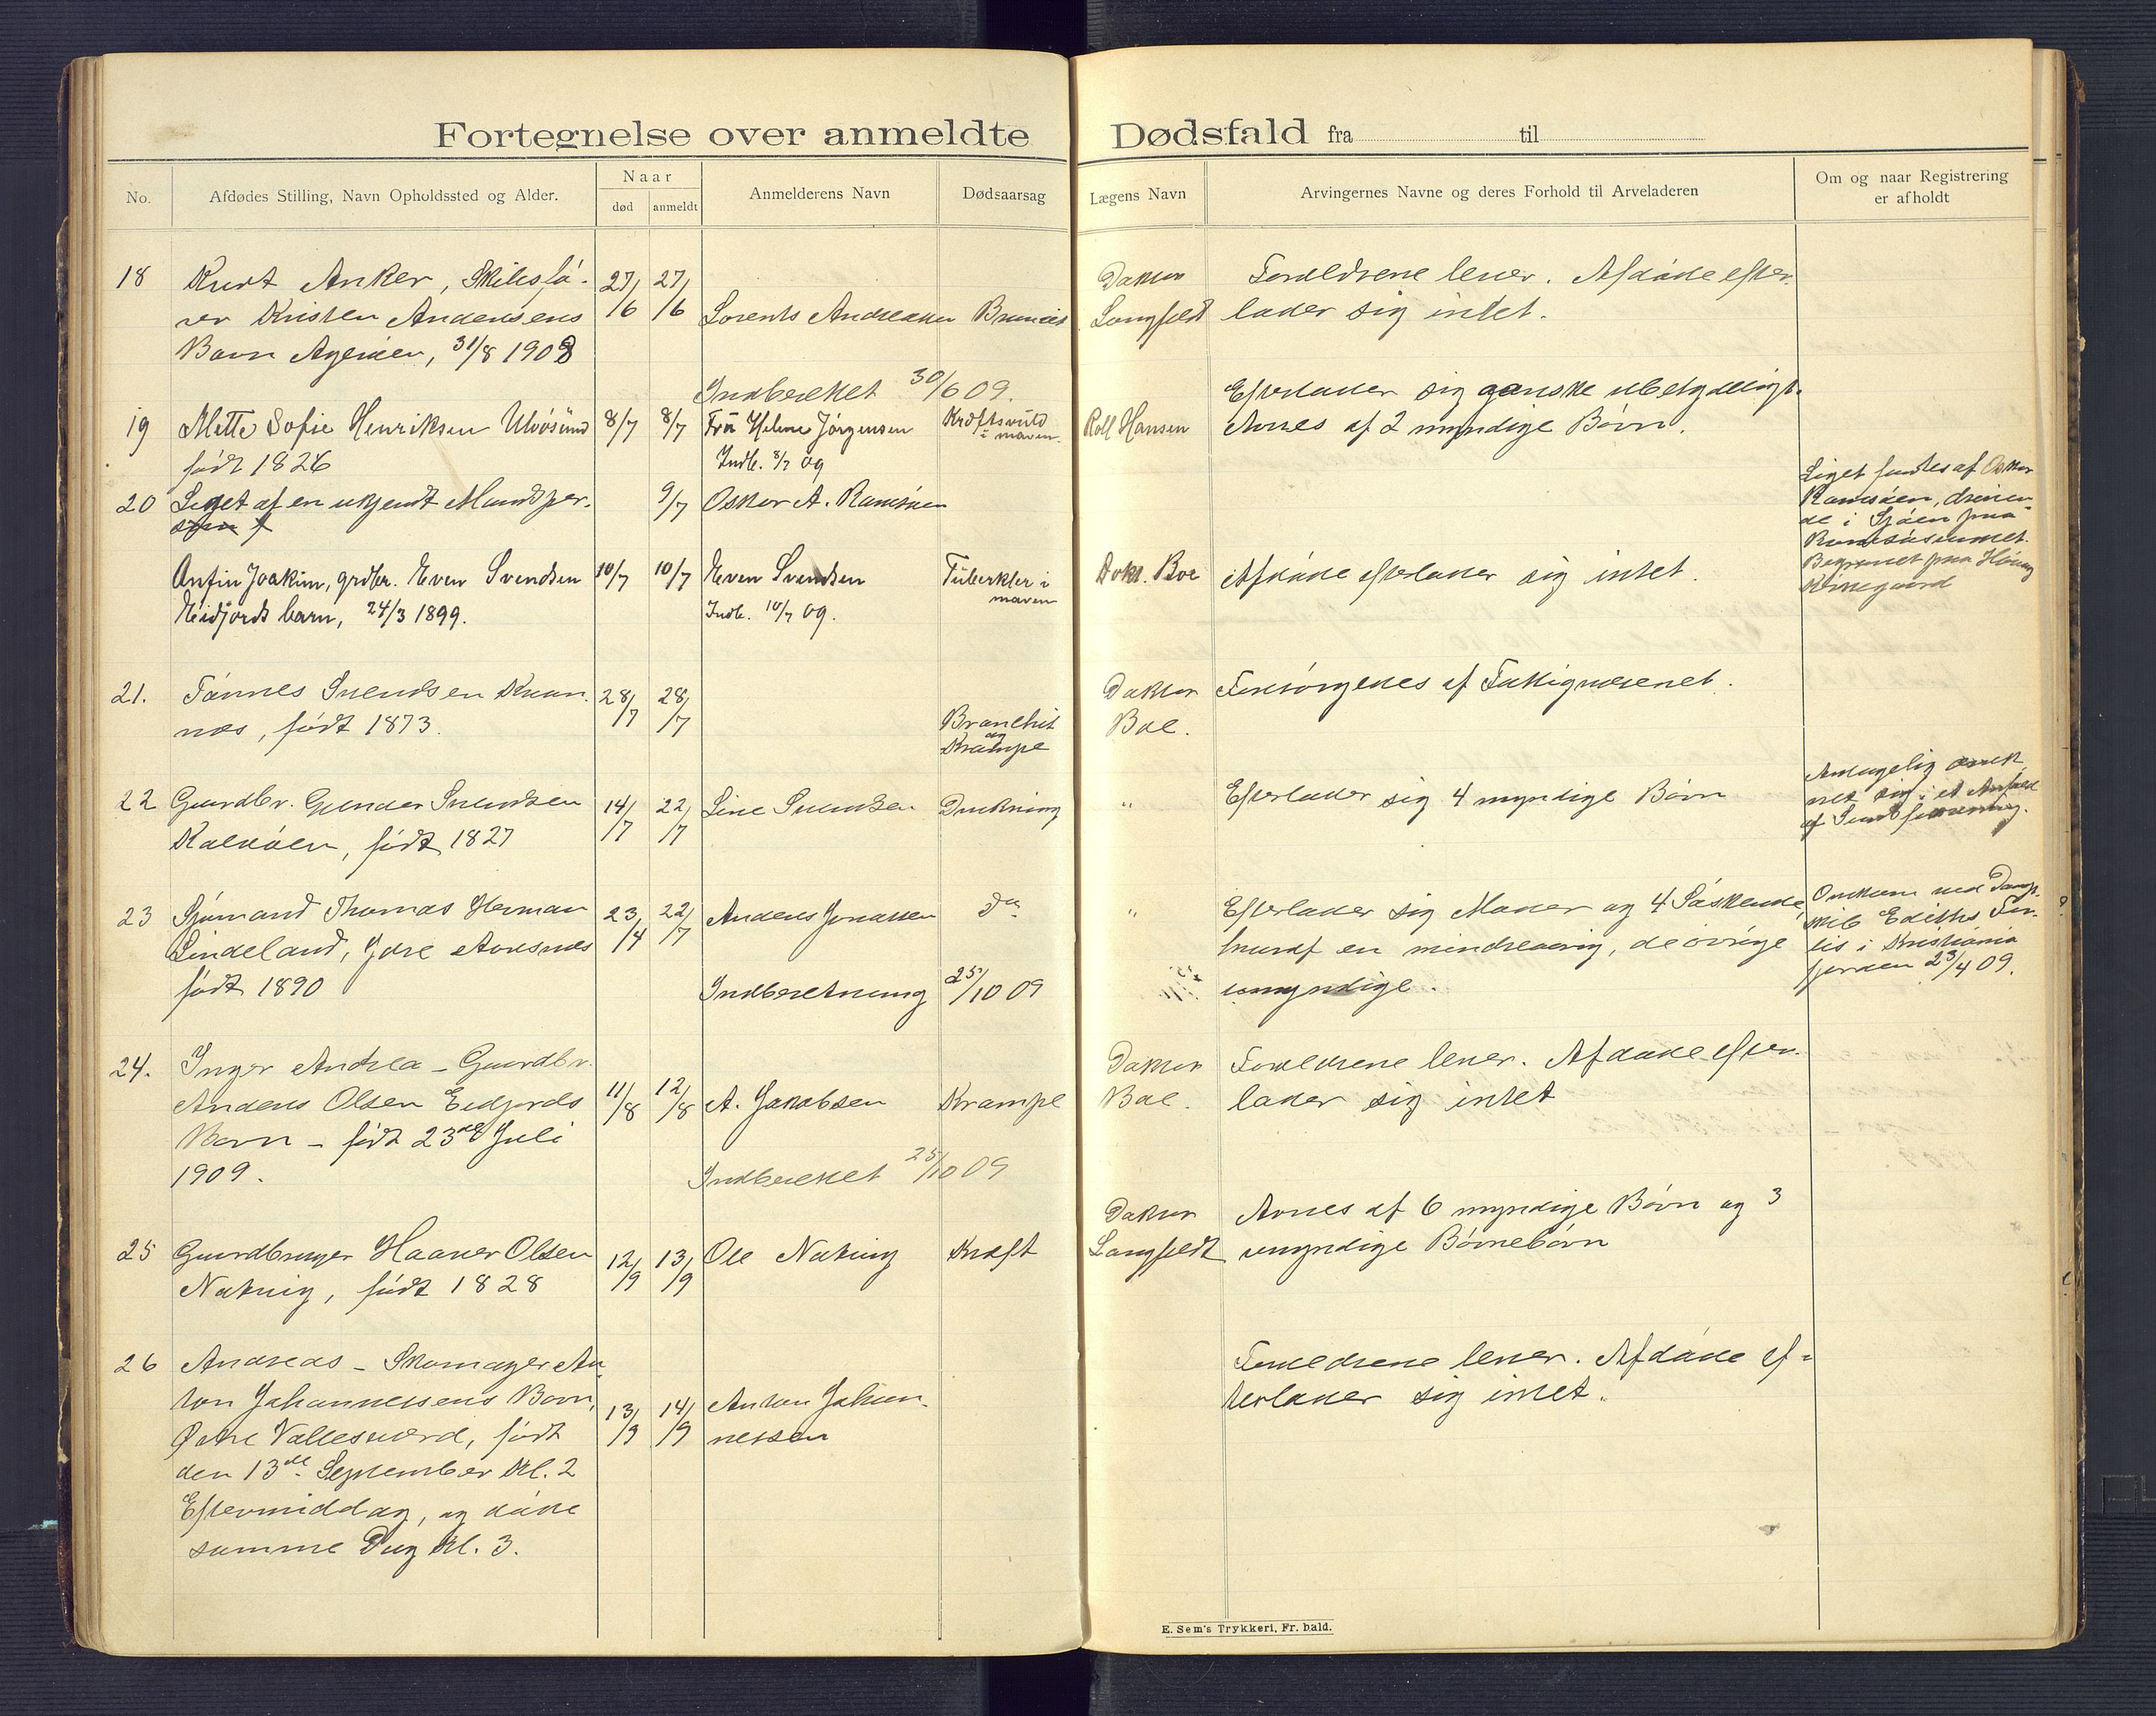 Fortegnelse over anmeldte Dødsfald fra til
No.
Afdødes Stilling, Navn Opholdssted og Alder.
Naar
død
anmeldt
Anmelderens Navn
Dødsaarsag
Lægens Navn
Arvingernes Navne og deres Forhold til Arveladeren
Om og naar Registrering
er afholdt
18 Kurt Anker, Skibsfø- 27/6 27/6 Doktor Forældrene lever. Afdøde efter-
rer Kristen Andersens Lorents Andreasen Langfeldt lader sig intet.
Barn Ågerøen, 31/8 1908
Indberettet 30/6 09.
Efterlader sig ganske ubetydeligt.
19 Mette Sofie Henriksen Ulvøsund 8/7 8/7 Fru Helene Jørgensen Kræftsvuld i maven. Rolf Hansen Arves af 2 myndige Børn.
født 1826 Indb. 8/7 09
20 Liget af en ukjendt Mandsper- 9/7 Oskar A. Ramsøen
son
Liget fandtes af Oskar
Ramsøen, driven-
de i Sjøen paa
Ramsøsundet.
Begravet paa Høvåg
Kirkegaard
Anfin Joakim, grdbr. Even Svendsen 10/7 10/7 Even Svendsen Tuberkler i maven Dokt. Boe Afdøde efterlader sig intet.
Eidjords barn, 24/3 1899. Indb. 10/7 09.
21. Tønnes Svendsen Kvan- 28/7 28/7 Doktor Forsørgedes af Fattigvæsenet.
næs, født 1873. Bronchit og Krampe Boe.
22 Gaardbr. Gunder Svendsen 14/7 22/7 Line Svendsen Drukning " Efterlader sig 4 myndige Børn
Kalvøen, født 1827
Antagelig druk-
net sig i et Anfald
af Sindsforvirring.
23 Sjømand Thomas Herman 23/4 22/7 Anders Jonassen do " Efterlader sig Moder og 4 Søskende,
Lindeland, Ydre Aarsnes hvoraf en mindreaarig, de øvrige
født 1890 Indberetning 25/10 09 umyndige.
Omkom ved Damp-
skib Ediths For-
lis i Kristiania
fjorden 23/4 09.
24. Inger Andrea - Gaardbr. Doktor Forældrene lever. Afdøde efter-
Anders Olsen Eidjords 11/8 12/8 A. Jakobsen Krampe Boe. lader sig intet
Barn - født 23de Juli
1909. Indberettet 25/10 09
Doktor Arves af 6 myndige Børn og 3
25 Gaardbruger Haaver Olsen 12/9 13/9 Ole Natvig Kræft Langfeldt umyndige Børnebørn
Natvig, født 1828
26 Andreas - Skomager An- Forældrene lever. Afdøde ef-
ton Johannessens Barn, 13/9 14/9 Anton Johan- terlader sig intet.
Østre Vallesværd, født nessen
den 13de September Kl. 2
Eftermiddag, og døde
samme Dag Kl. 3.
E. Sem's Trykkeri, Fr. hald.